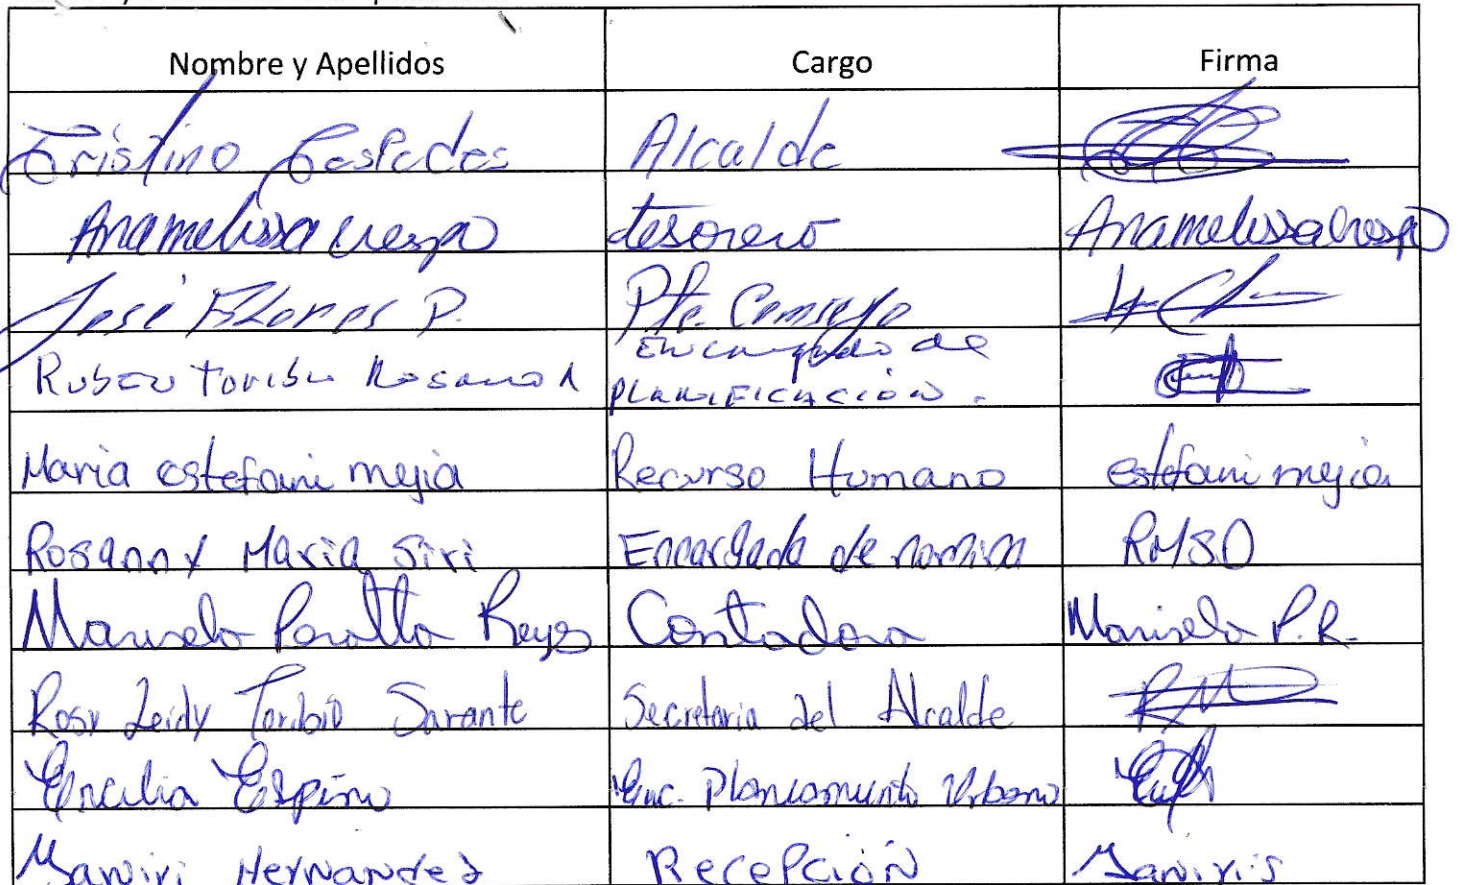 Nombre y Apellidos Cargo Firma
Cristino Cespedes Alcalde
Anamelissa Crespo tesorero Anamelissa Crespo
José Flores P. Pte. Consejo
Encargado de
Ruben Toribio Rosario
PLANIFICACIÓN.
Maria estefani mejia Recurso Humano estefani mejia
Rosanny Maria Siri Encargada de nomina RMSO
Marisela Peralta Reyes Contadora Marisela P.R.
Rosy Leidy Toribio Sarante Secretaria del Alcalde
Ercilia Espino Enc. Planeamiento Urbano
Hernandez Recepción